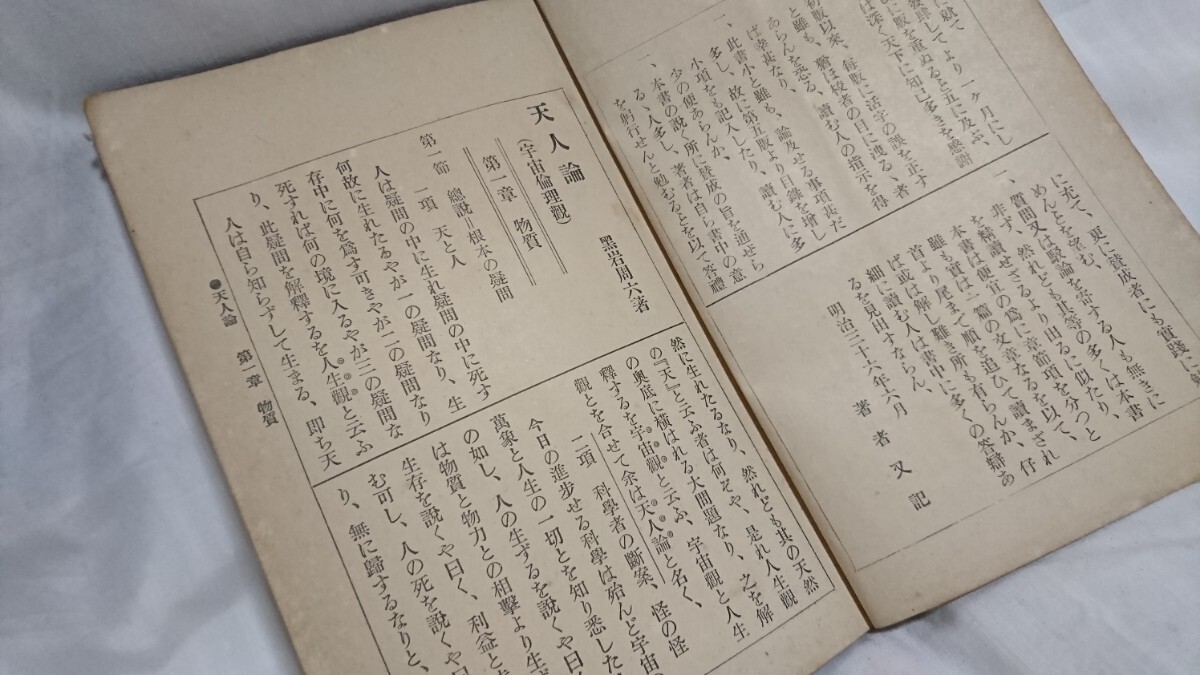 に充て、更に賛成者にも實踐に
めんとを望む、
一、質問又は駁論を寄する人も無きに
非ず、然れども其等の多くは本書
を精讀せざるより出るに似たり、
本書は便宜の爲に章節項を分つと
雖も實は一篇の文章なるを以て、
首より尾まで順を追ひて讀まされ
ば或は解し難き所も有らんか、仔
細に讀む人は書中に多くの答辯あ
るを見出すならん、
明治三十六年六月 著者又記
てより一ヶ月にし
に版を重ぬると五に及ぶ、
は深く天下に知己多きを感謝
初版以來、毎版に活字の誤を正す
と雖も、猶は校者の目に洩るゝ者
あらんを恐る、讀む人の指示を得
ば幸甚なり、
一、此書小と雖も、論及せる事項甚だ
多し、故に第五版より目錄を增し
小項をも記入したり、讀む人に多
少の便あらんか、
一、本書の說く所に賛成の旨を通せら
るゝ人多し、著者は自ら書中の意
を躬行せんと勉むるとを以て答禮
天人論
(宇宙倫理觀)
黑岩周六著
第一章 物質
第一節 總說=根本の疑問
一項 天と人
人は疑問の中に生れ疑問の中に死す
何故に生れたるやが一の疑問なり、生
存中に何を爲す可きやが二の疑問なり
死すれば何の境に入るやが三の疑問な
り、此疑問を解釋するを人生觀と云ふ
人は自ら知らずして生まる、即ち天
然に生れたるなり、然れども其の天然
の『天』と云ふ者は何ぞや、是れ人生觀
の奧底に橫はれる大問題なり、之を解
釋するを宇宙觀と云ふ、宇宙觀と人生
觀とを合せて余は天人論と名く、
二項 科學者の斷案、怪の怪
今日の進步せる科學は殆んど宇宙の
萬象と人生の一切とを知り悉した
の如し、人の生ずるを說くや曰
は物質と物力との相擊より生ず
生存を說くや曰く、利益と
む可し、人の死を說くや曰
り、無に歸するなりと、
●天人論 第一章 物質